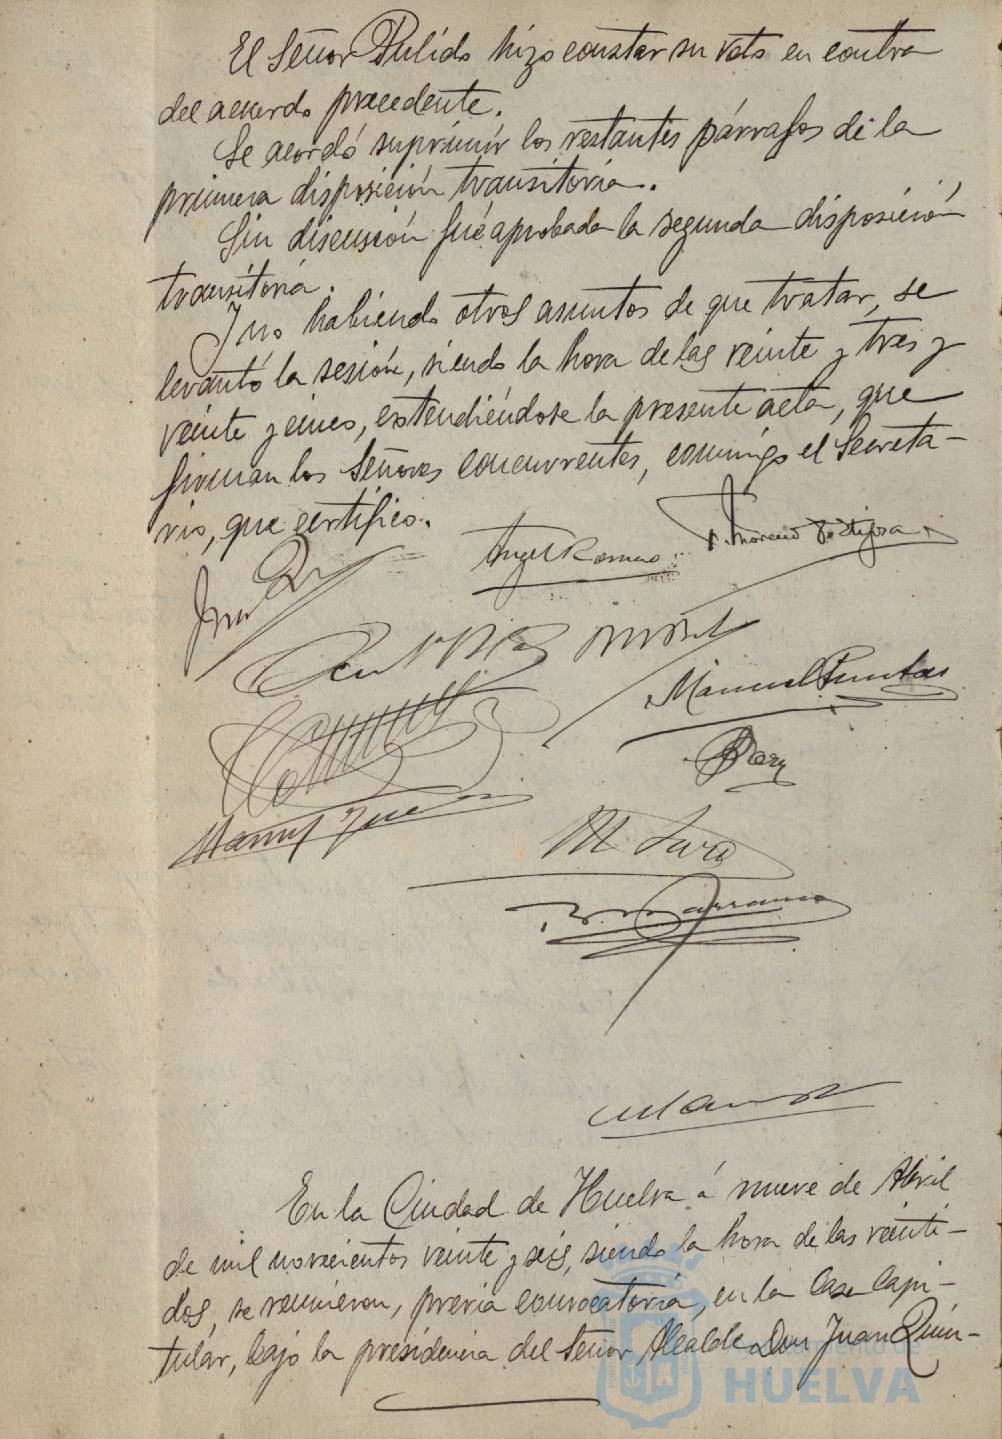 El Señor Pulido hizo constar su voto en contra
del acuerdo precedente.
Se acordó suprimir los restantes párrafos de la
primera disposición transitoria.
Sin discusión fué aprobada la segunda disposición
transitoria.
Y no habiendo otros asuntos de que tratar, se
levantó la sesión, siendo la hora de las veinte y tres y
veinte y cinco, extendiéndose la presente acta, que
firman los Señores concurrentes, conmigo el Secreta-
rio, que certifico.
Angel Romero
Moreno
Manuel
M Jara
En la Ciudad de Huelva á nueve de Abril
de mil novecientos veinte y seis, siendo la hora de las veinti-
dos, se reunieron, previa convocatoria, en la Casa Capi-
tular, bajo la presidencia del Señor Alcalde Don Juan Quin-
Ayuntamiento de
HUELVA